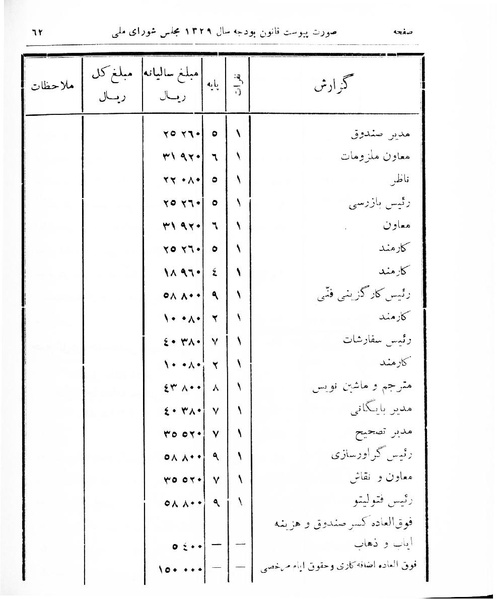 صفحه صورت پیوست قانون بودجه سال ۱۳۲۹ مجلس شورای ملی ٦۲
گزارش نفرات پایه مبلغ سالیانه ریـال مبلغ کل ریـال ملاحظات
مدیر صندوق ۱ ٥ ۲٥ ۲٦۰
معاون ملزومات ۱ ٦ ۳۱ ۹۲۰
ناظر ۱ ٥ ۲۲ ۰۸۰
رئیس بازرسی ۱ ٥ ۲٥ ۲٦۰
معاون ۱ ٦ ۳۱ ۹۲۰
کارمند ۱ ٥ ۲٥ ۲٦۰
کارمند ۱ ٤ ۱۸ ۹٦۰
رئیس کارگزینی فنّی ۱ ۹ ٥۸ ۸۰۰
کارمند ۱ ۲ ۱۰ ۰۸۰
رئیس سفارشات ۱ ۷ ٤۰ ۳۸۰
کارمند ۱ ۲ ۱۰ ۰۸۰
مترجم و ماشین نویس ۱ ۸ ٤۳ ۸۰۰
مدیر بایگانی ۱ ۷ ٤۰ ۳۸۰
مدیر تصحیح ۱ ۷ ۳٥ ٥۲۰
رئیس گراورسازی ۱ ۹ ٥۸ ۸۰۰
معاون و نقاش ۱ ۷ ۳٥ ٥۲۰
رئیس فتولیتو ۱ ۹ ٥۸ ۸۰۰
فوق‌العاده کسر صندوق و هزینه
ایاب و ذهاب — — ٥ ٤۰۰
فوق العاده اضافه کاری و حقوق ایام مرخصی — — ۱٥۰ ۰۰۰